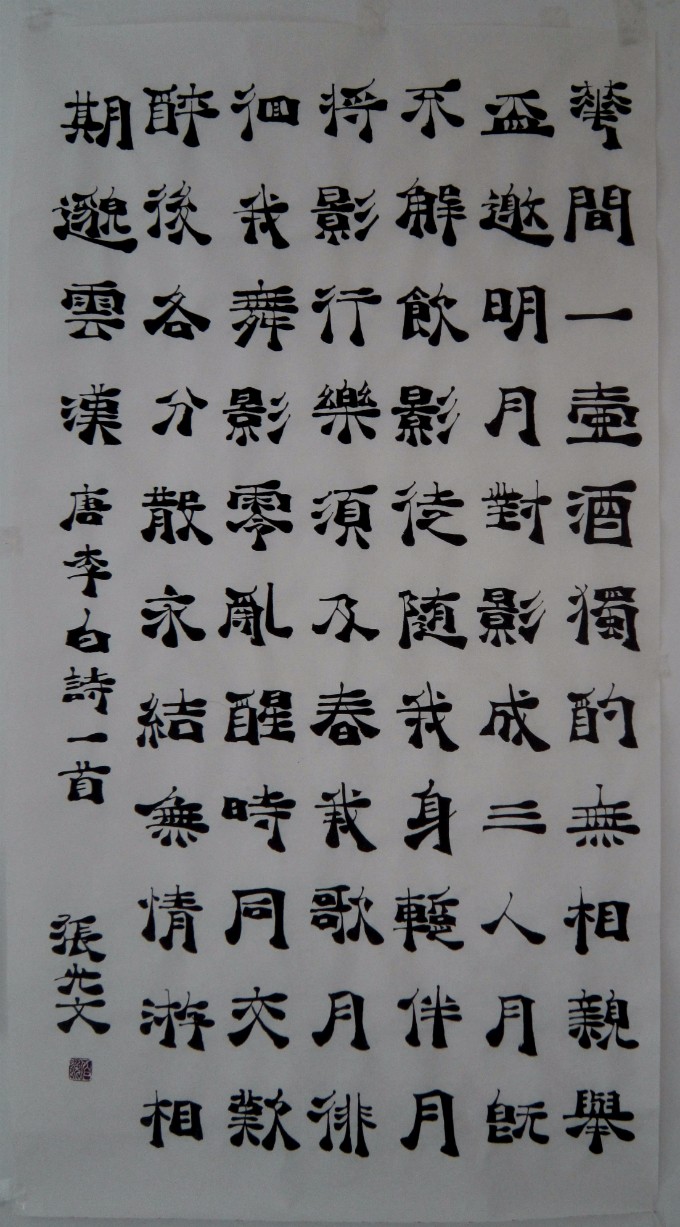 華間一壺酒獨酌無相親舉
盃邀明月對影成三人月既
不解飲影徒随我身暫伴月
将影行樂須及春我歌月徘
徊我舞影零亂醒時同交歡
醉後各分散永結無情游相
期邈雲漢唐李白詩一首
張文